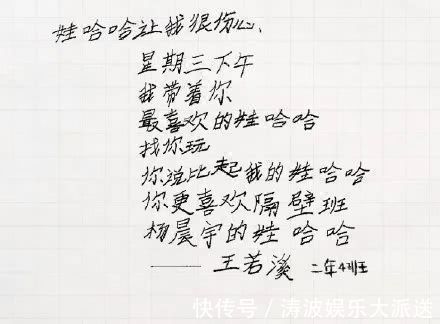 娃哈哈让我很伤心
星期三下午
我带着你
最喜欢的娃哈哈
找你玩
你说比起我的娃哈哈
你更喜欢隔壁班
杨晨宇的娃哈哈
—— 王若溪 二年4班
快传号／涛波娱乐大派送